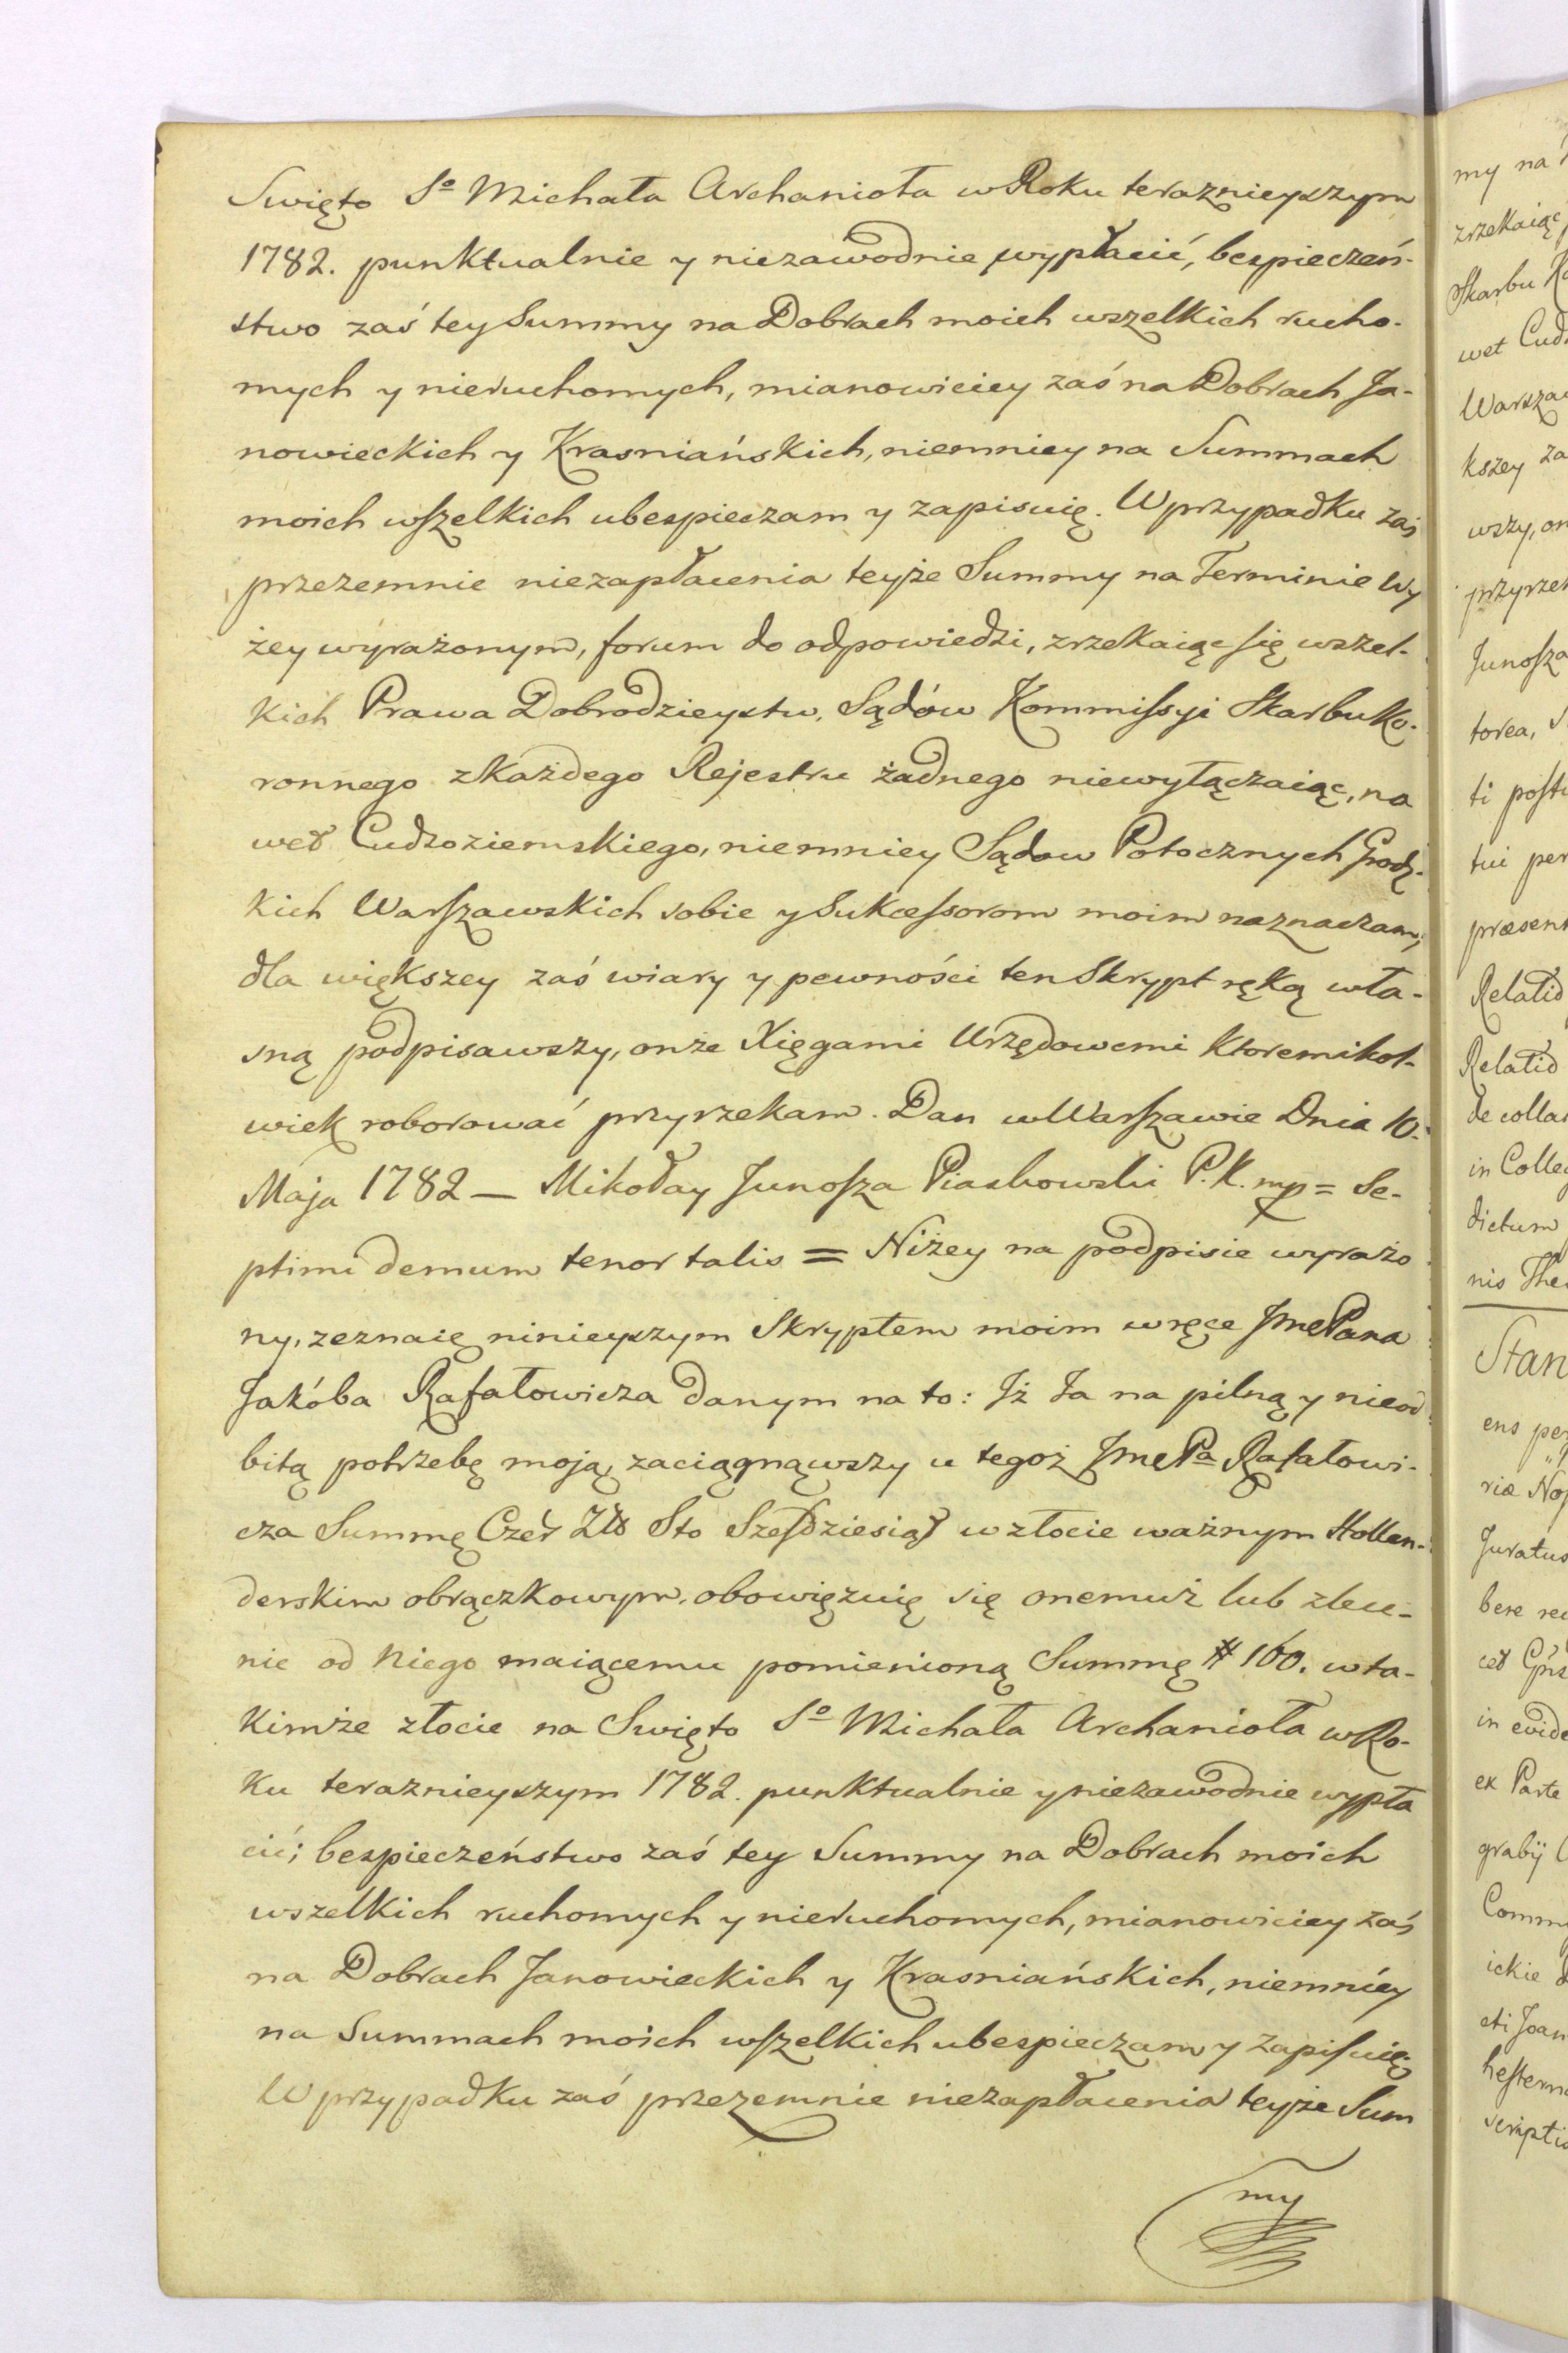 Swięto Sº Michała Archanioła w Roku teraznieyszym
1782. punktualnie y niezawodnie wypłacić, bespieczeń-
stwo zaś tey Summy na Dobrach moich wszelkich rucho-
mych y nieruchomych, mianowiciey zaś na Dobrach Ja-
nowieckich y Krasniańskich, niemniey na Summach
moich wszelkich ubespieczam y zapisuię. W przypadku zaś
przezemnie niezapłacenia teyże Summy na Terminie wy
żey wyrażonym, forum do odpowiedzi, zrzekaiąc się wszel-
kich Prawa Dobrodzieystw, Sądów Kommissyi Skarbu Ko-
ronnego z każdego Rejestru żadnego niewyłączaiąc, na
wet Cudzoziemskiego, niemniey Sądow Potocznych Grodz-
kich Warszawskich sobie y Sukcessorom moim naznaczam,
dla większey zaś wiary y pewności ten Skrypt ręką wła-
sną podpisawszy, onże Xięgami Urzędowemi ktoremikol-
wiek roborować przyrzekam. Dan w Warszawie Dnia 10.
Maja 1782 — Mikołay Junosza Piaskowski P. K. mp = Se-
ptimi demum tenor talis = Niżey na podpisie wyrażo
ny, zeznaię ninieyszym Skryptem moim w ręce Jmć Pana
Jakóba Rafałowicza danym na to: Iż Ja na pilną y nieod
bitą potrzebę moją, zaciągnąwszy u tegoż Jmć Pa Rafałowi-
cza Summę Czer Zło Sto Sześdziesiąt w złocie ważnym Hollen-
derskim obrączkowym, obowięzuię się onemuż lub zlece-
nie od Niego maiącemu pomienioną Summę # 160. w ta-
kimże złocie na Swięto Sº Michała Archanioła w Ro-
ku teraznieyszym 1782. punktualnie y niezawodnie wypła
cić; bespieczeństwo zaś tey Summy na Dobrach moich
wszelkich ruchomych y nieruchomych, mianowiciey zaś
na Dobrach Janowieckich y Krasniańskich, niemniéy
na Summach moich wszelkich ubespieczam y zapisuię
W przypadku zaś przezemnie niezapłacenia teyże Sum
my
my na
zrzekaiąc
Skarbu Ko
wet Cudz
Warszaw
kszey za
wszy, on
przyrzek
Junosza
torea,
ti postu
tui per
præsent
Relatio
Relatio
de collat
in Colleg
dictum
nis The
Stan
ens per
riæ No
Juratus
bere rec
in evide
ex Parte
Comm
ickie d
cti Joan
hestern
scriptio